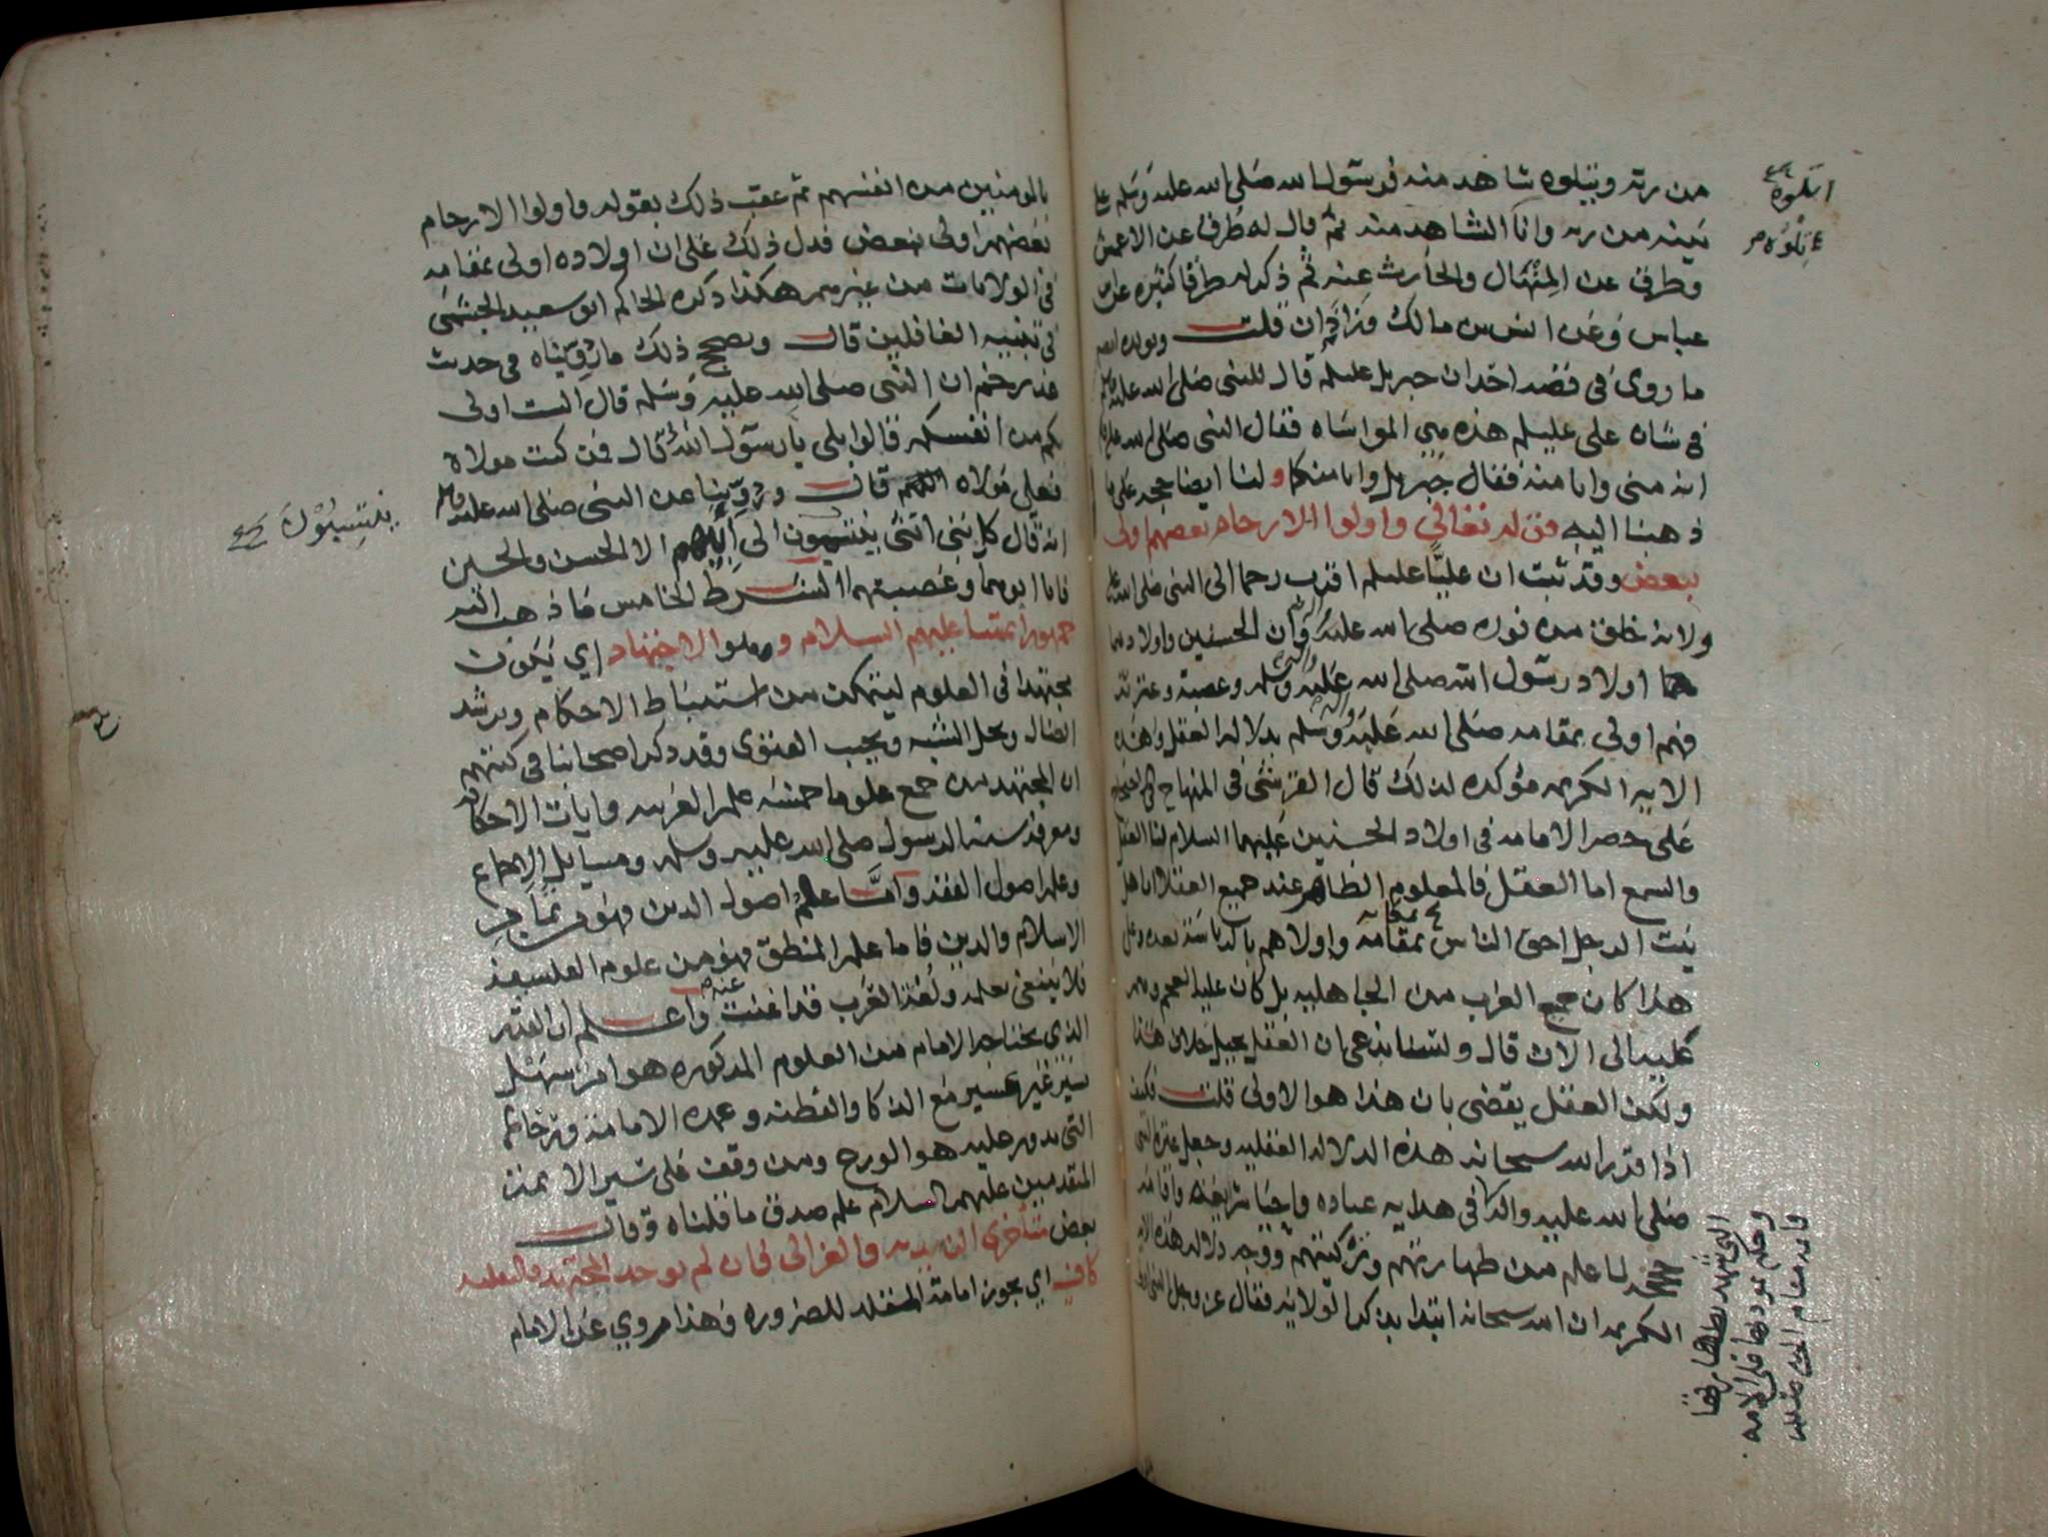 من ربه ويتلوه شاهد منه فرسول الله صلى الله عليه وسلم على
بينه من ربه وانا الشاهد منه ثم قال له طرق عن الاعمش
وطرق عن المنهال والحارث عنه ثم ذكر له طرقا كثيره عن ابن
عباس وعن انس بن مالك وزاذان قلت ويويده ايضا
ما روى في قصه احد ان جبريل عليلم قال للنبي صلى الله عليه وسلم
في شان على عليلم هذه هي المواساه فقال النبي صلى الله عليه
انه منى وانا منه فقال جبريل وانا منكما ولنا ايضا حجه على ما
ذهبنا اليه قوله تعالى واولوا الارحام بعضهم اولى
ببعض وقد ثبت ان عليا عليلم اقرب رحما الى النبي صلى الله عليه
ولانه خلق من نوره صلى الله عليه وان الحسنين واولادهما
هما اولاد رسول الله صلى الله عليه وسلم وعصبته وعترته
فهم اولى بمقامه صلى الله عليه وسلم بدلاله العقل وهذه
الايه الكريمه مؤكده لذلك قال القرشي في المنهاج
على حصر الامامه في اولاد الحسنين عليهما السلام لنا العقل
والسمع اما العقل فالمعلوم الظاهر عند جميع العقلا ان اهل
بيت الرجل احق الناس بمقامه واولاهم بالرياسة بعده وعلى
هذا كان جميع العرب من الجاهليه بل كان عليه العجم وهم
عليه الى الان قال ولسنا ندعى ان العقل يحيل خلاف هذا
ولكن العقل يقضى بان هذا هو الاولى قلت فكيف
اذا قرر الله سبحانه هذه الدلاله العقليه وجعل عترة النبي
صلى الله عليه واله في هدايه عباده واحيا شرايعه واقامه
لما علم من طهارتهم وتزكيتهم ووجه دلاله هذه الايه
الكريمه ان الله سبحانه ابتدا بذكر الولايه فقال عز وجل النبي اولى
بالمومنين من انفسهم ثم عقب ذلك بقوله واولوا الارحام
بعضهم اولى ببعض فدل ذلك على ان اولاده اولى بمقامه
في الولايات من غيرهم هكذا ذكره الحاكم ابو سعيد الجشمي
في تنبيه الغافلين قال ويصحح ذلك ما رويناه في حديث
غدير خم ان النبي صلى الله عليه وسلم قال الست اولى
بكم من انفسكم قالوا بلى يا رسول الله قال فمن كنت مولاه
فعلي مولاه قال وروينا عن النبي صلى الله عليه وسلم
انه قال كل بني انثى ينتمون الى ابيهم الا الحسن والحسين
فانا ابوهما وعصبتهما الشرط الخامس ما ذهب اليه
جمهور ائمتنا عليهم السلام وهو الاجتهاد اي يكون
مجتهدا في العلوم ليتمكن من استنباط الاحكام ويرشد
الضال ويحل الشبه ويجيب الفتوى وقد ذكر اصحابنا في كتبهم
ان المجتهد من جمع علوما خمسه علم العربيه وايات الاحكام
ومعرفة سنه الرسول صلى الله عليه وسلم ومسايل الاجماع
وعلم اصول الفقه واما علم اصول الدين فهو
الاسلام والدين فاما علم المنطق فهو من علوم الفلسفه
فلا ينبغي تعلمه ولغة العرب قد اغنت عنه واعلم ان القدر
الذي يحتاجه الامام من العلوم المذكوره هو امر سهل
يسير غير عسير مع الذكا والفطنه وعمده الامامة وقرخاتها
التي يدور عليه هو الورع ومن وقف على سير الائمة
المتقدمين عليهم السلام علم صدق ما قلناه وقال
بعض متأخرى الزيديه والغزالي فان لم يوجد المجتهد فالمقلد
كاف اي يجوز امامة المقلد للضروره وهذا مروي عن الامام
يتلوه
ينتسبون
التي شهد بطهارتها
وحكم بمودتها على الامه